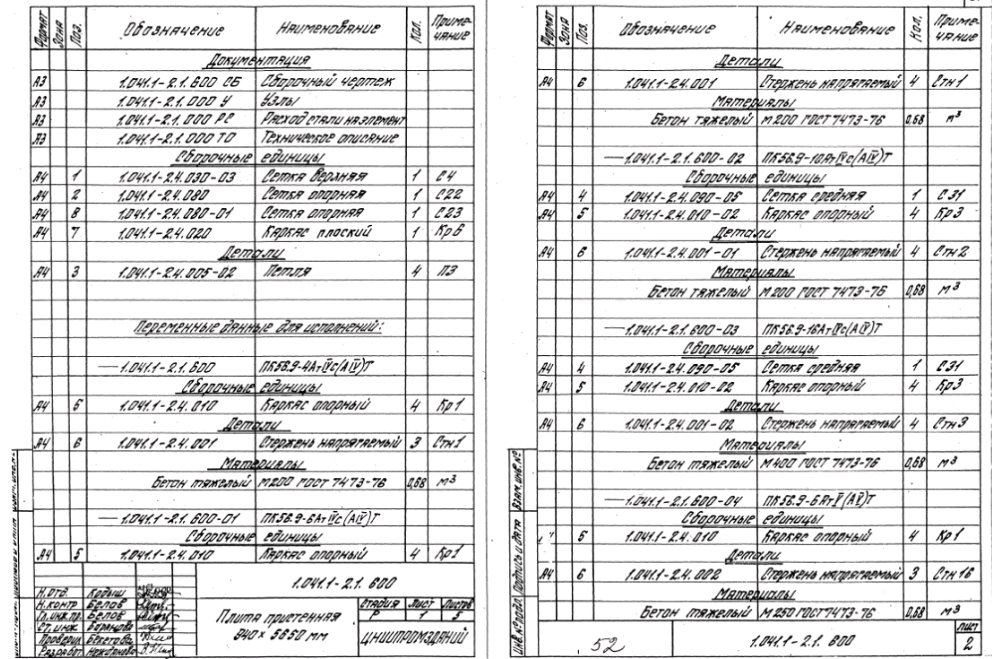 Формат Зона Поз. Обозначение Наименование Кол. Примечание
Документация
А3 1.041.1-2.1.600 СБ Сборочный чертеж
А3 1.041.1-2.1.000 У Узлы
А3 1.041.1-2.1.000 РС Расход стали на элемент
А3 1.041.1-2.1.000 ТО Техническое описание
Сборочные единицы
А4 1 1.041.1-2.4.030-03 Сетка верхняя 1 С4
А4 2 1.041.1-2.4.080 Сетка опорная 1 С22
А4 8 1.041.1-2.4.080-01 Сетка опорная 1 С23
А4 7 1.041.1-2.4.020 Каркас плоский 1 Кр6
Детали
А4 3 1.041.1-2.4.005-02 Петля 4 П3
Переменные данные для исполнений:
— 1.041.1-2.1.600 ПК56.9-4АтIVс(АIV)Т
Сборочные единицы
А4 5 1.041.1-2.4.010 Каркас опорный 4 Кр1
Детали
А4 6 1.041.1-2.4.001 Стержень напрягаемый 3 Стн1
Материалы
Бетон тяжелый М200 ГОСТ 7473-76 0,68 м³
— 1.041.1-2.1.600-01 ПК56.9-6АтIVс(АIV)Т
Сборочные единицы
А4 5 1.041.1-2.4.010 Каркас опорный 4 Кр1
1.041.1-2.1.600
Н.отд. Кодыш
Н.контр Белов
Гл.инж.пр. Белов
Ст.инж.
Проверил
Разработ.
Плита пристенная
940×5650 мм
Стадия Лист Листов
Р 3
ЦНИИПРОМЗДАНИЙ
Формат Зона Поз. Обозначение Наименование Кол. Примечание
Детали
А4 6 1.041.1-2.4.001 Стержень напрягаемый 4 Стн1
Материалы
Бетон тяжелый М200 ГОСТ 7473-76 0,68 м³
— 1.041.1-2.1.600-02 ПК56.9-10АтIVс(АIV)Т
Сборочные единицы
А4 4 1.041.1-2.4.090-05 Сетка средняя 1 С31
А4 5 1.041.1-2.4.010-02 Каркас опорный 4 Кр3
Детали
А4 6 1.041.1-2.4.001-01 Стержень напрягаемый 4 Стн2
Материалы
Бетон тяжелый М200 ГОСТ 7473-76 0,68 м³
— 1.041.1-2.1.600-03 ПК56.9-16АтIVс(АIV)Т
Сборочные единицы
А4 4 1.041.1-2.4.090-05 Сетка средняя 1 С31
А4 5 1.041.1-2.4.010-02 Каркас опорный 4 Кр3
Детали
А4 6 1.041.1-2.4.001-02 Стержень напрягаемый 4 Стн3
Материалы
Бетон тяжелый М400 ГОСТ 7473-76 0,68 м³
— 1.041.1-2.1.600-04 ПК56.9-6АтV(АV)Т
Сборочные единицы
5 1.041.1-2.4.010 Каркас опорный 4 Кр1
Детали
А4 6 1.041.1-2.4.002 Стержень напрягаемый 3 Стн16
Материалы
Бетон тяжелый М250 ГОСТ 7473-76 0,68 м³
Инв.№подл. Подпись и дата Взам.инв.№
52
1.041.1-2.1.600
Лист
2